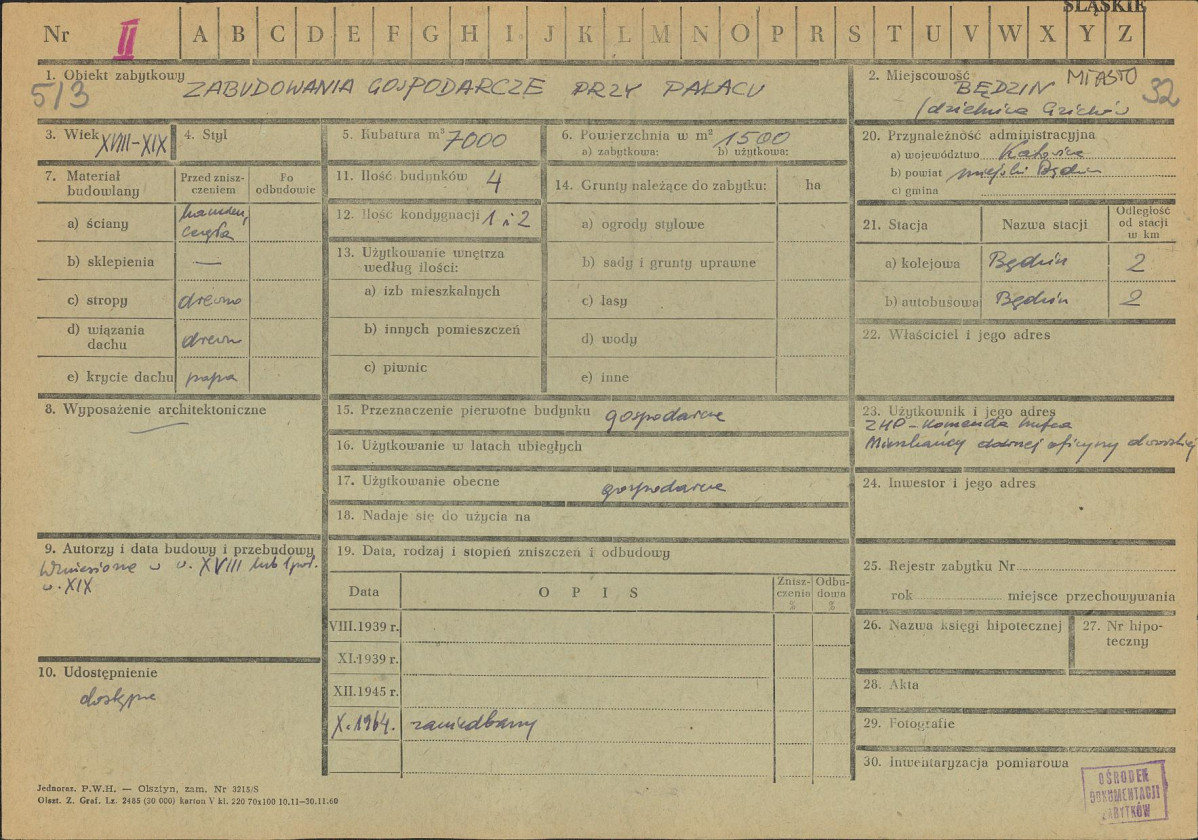 ŚLĄSKIE
Nr II A B C D E F G H I J K L M N O P R S T U V W X Y Z
1. Obiekt zabytkowy ZABUDOWANIA GOSPODARCZE PRZY PAŁACU
513
2. Miejscowość BĘDZIN MIASTO 32
(dzielnica Gzichów
3. Wiek XVIII-XIX
4. Styl
5. Kubatura m³ 7000
6. Powierzchnia w m² 1500
a) zabytkowa: b) użytkowa:
7. Materiał budowlany
Przed zniszczeniem
Po odbudowie
a) ściany kamień, cegła
b) sklepienia —
c) stropy drewno
d) wiązania dachu drewn
e) krycie dachu papa
8. Wyposażenie architektoniczne
9. Autorzy i data budowy i przebudowy
Wzniesione w w. XVIII lub 1 poł.
w. XIX
10. Udostępnienie
dostępne
11. Ilość budynków 4
12. Ilość kondygnacji 1 i 2
13. Użytkowanie wnętrza
według ilości:
a) izb mieszkalnych
b) innych pomieszczeń
c) piwnic
14. Grunty należące do zabytku: ha
a) ogrody stylowe
b) sady i grunty uprawne
c) lasy
d) wody
e) inne
15. Przeznaczenie pierwotne budynku gospodarcze
16. Użytkowanie w latach ubiegłych
17. Użytkowanie obecne gospodarcze
18. Nadaje się do użycia na
19. Data, rodzaj i stopień zniszczeń i odbudowy
Data OPIS Zniszczenia % Odbudowa %
VIII.1939 r.
XI.1939 r.
XII.1945 r.
X.1964. zaniedbany
20. Przynależność administracyjna
a) województwo Katowice
b) powiat miejski Będzin
c) gmina
21. Stacja Nazwa stacji Odległość od stacji w km
a) kolejowa Będzin 2
b) autobusowa Będzin 2
22. Właściciel i jego adres
23. Użytkownik i jego adres
ZHP - Komenda Hufca
Mieszkańcy dawnej oficyny dworskiej
24. Inwestor i jego adres
25. Rejestr zabytku Nr
rok miejsce przechowywania
26. Nazwa księgi hipotecznej
27. Nr hipoteczny
28. Akta
29. Fotografie
30. Inwentaryzacja pomiarowa
OŚRODEK
DOKUMENTACJI
ZABYTKÓW
Jednoraz. P.W.H. — Olsztyn, zam. Nr 3215/S
Olszt. Z. Graf. Lz. 2485 (30 000) karton V kl. 220 70x100 10.11—30.11.60